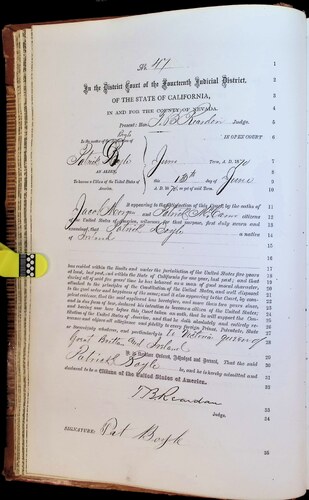 No. 47
In the District Court of the Fourteenth Judicial District.
OF THE STATE OF CALIFORNIA,
IN AND FOR THE COUNTY OF NEVADA.
Present: Hon. T B Reardan Judge.
Boyle
In the matter of the IN OPEN COURT
Patrick Boyle June Term, A. D. 1870
AN ALIEN, this 13th day of June
To become a Citizen of the United States of America. A. D. 1870, as yet of said Term.
It appearing to the satisfaction of this Court, by the oaths of
Jacob and Patrick citizens
of the United States of America, witnesses for that purpose, first duly sworn and
examined, that Patrick Boyle a native
of Ireland
has resided within the limits and under the jurisdiction of the United States five years
at least, last past, and within the State of California for one year, last past; and that
during all of said five years' time he has behaved as a man of good moral character,
attached to the principles of the Constitution of the United States, and well disposed
to the good order and happiness of the same; and it also appearing to the Court, by competent
evidence, that the said applicant has heretofore, and more than two years since,
and in due form of law, declared his intention to become a citizen of the United States;
and having now here before this Court taken an oath, that he will support the Constitution
of the United States of America, and that he doth absolutely and entirely renounce
and abjure all allegiance and fidelity to every foreign Prince, Potentate, State
or Sovereignty whatever, and particularly to Victoria queen of
Great Britain and Ireland
It is therefore Ordered, Adjudged and Decreed, That the said
Patrick Boyle be, and he is hereby admitted and
declared to be a Citizen of the United States of America.
T B Reardan
Judge.
SIGNATURE: Pat Boyle
1
2
3
4
5
6
7
8
9
10
11
12
13
14
15
16
17
18
19
20
21
22
23
24
25
26
27
28
29
30
31
32
33
34
35